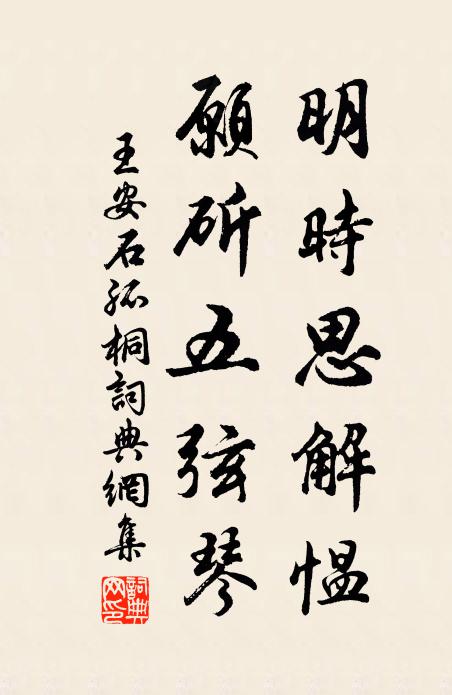 明時思解愠
願斫五弦琴
王安石孤桐詞典網集
詞典网印